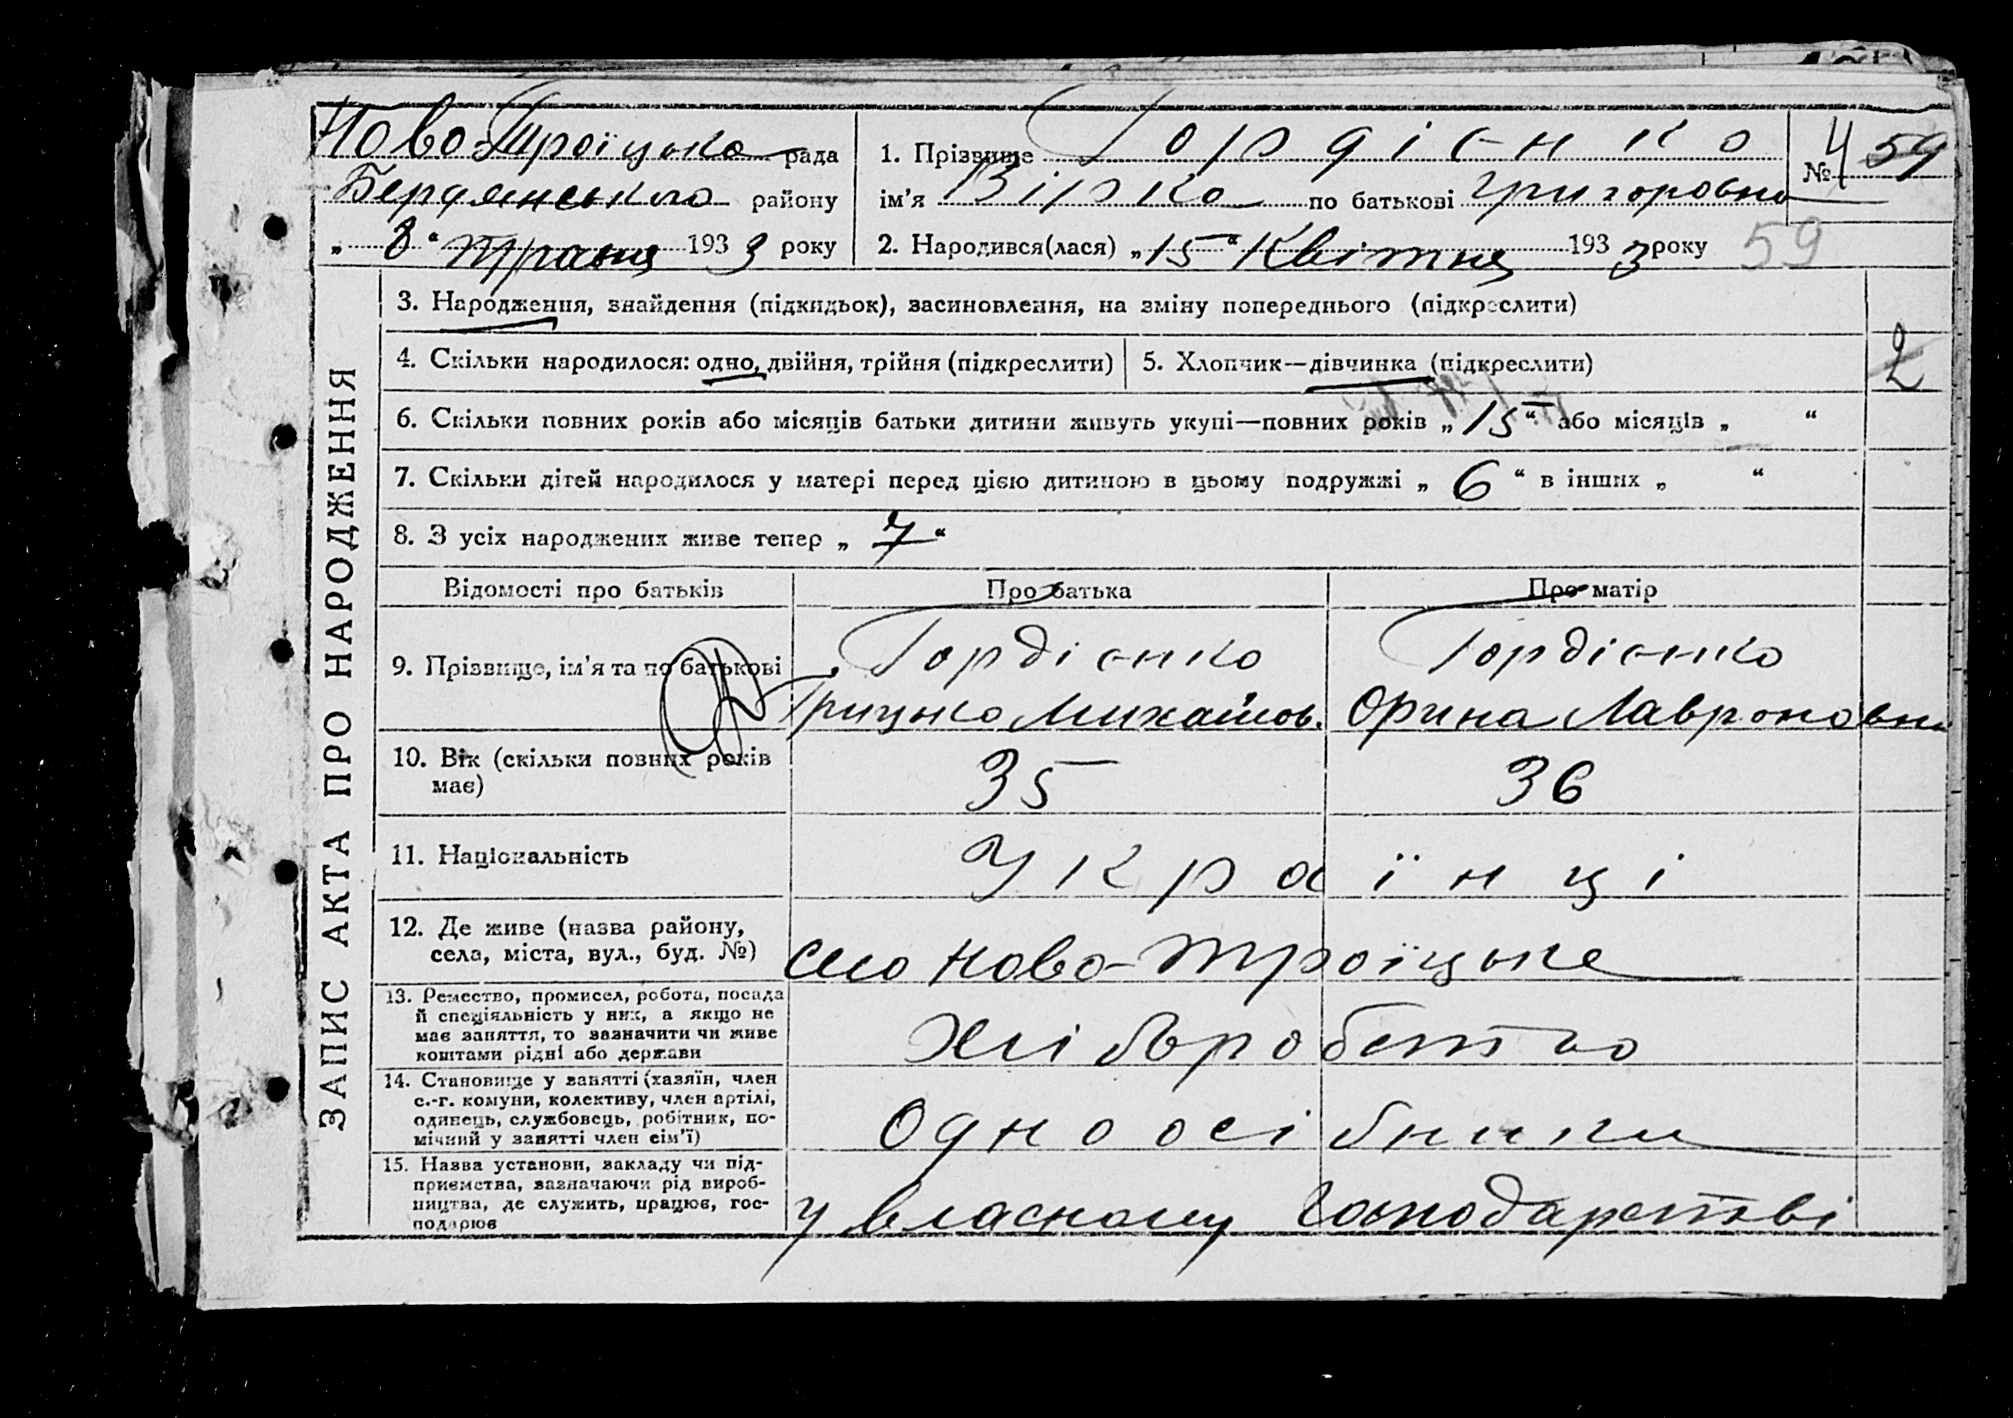 Ново Троїцька рада
Бердянського району
„ 8 “ Травня 1933 року
1. Прізвище Гордієнко
ім’я Вірка по батькові Григоровна
2. Народився(лася) „ 15 “ Квітня 1933 року
№ 4 59
59
ЗАПИС АКТА ПРО НАРОДЖЕННЯ
3. Народження, знайдення (підкидьок), засиновлення, на зміну попереднього (підкреслити)
4. Скільки народилося: одно, двійня, трійня (підкреслити)
5. Хлопчик—дівчинка (підкреслити)
2
6. Скільки повних років або місяців батьки дитини живуть укупі—повних років „ 15 “ або місяців „ “
7. Скільки дітей народилося у матері перед цією дитиною в цьому подружжі „ 6 “ в інших „ “
8. З усіх народжених живе тепер „ 7 “
Відомості про батьків Про батька Про матір
9. Прізвище, ім’я та по батькові Гордієнко Гордієнко
Грицько Михайлов. Орина Лавроновна
10. Вік (скільки повних років
має) 35 36
11. Національність Українці
12. Де живе (назва району,
села, міста, вул., буд. №) село Ново-Троїцьке
13. Ремество, промисел, робота, посада
й спеціяльність у них, а якщо не
має заняття, то зазначити чи живе
коштами рідні або держави
Хліборобство
14. Становище у занятті (хазяїн, член
с.-г. комуни, колективу, член артілі,
одинець, службовець, робітник, по-
мічний у занятті член сім’ї)
Одноосібники
15. Назва установи, закладу чи під-
приємства, зазначаючи рід вироб-
ництва, де служить, працює, гос-
подарює
у власному господарстві